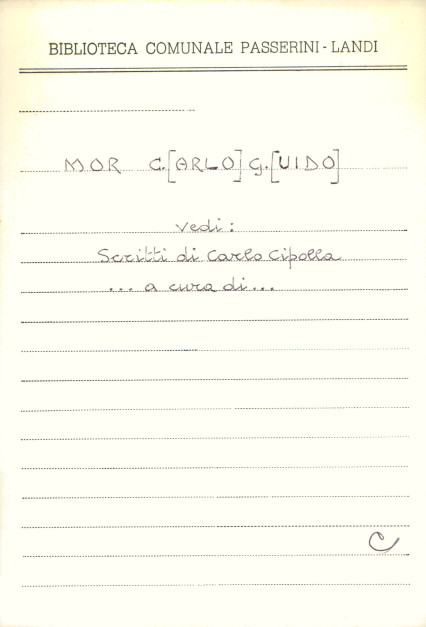 BIBLIOTECA COMUNALE PASSERINI - LANDI
MOR C.[ARLO] G.[UIDO]
Vedi:
Scritti di Carlo Cipolla
... a cura di ...
C